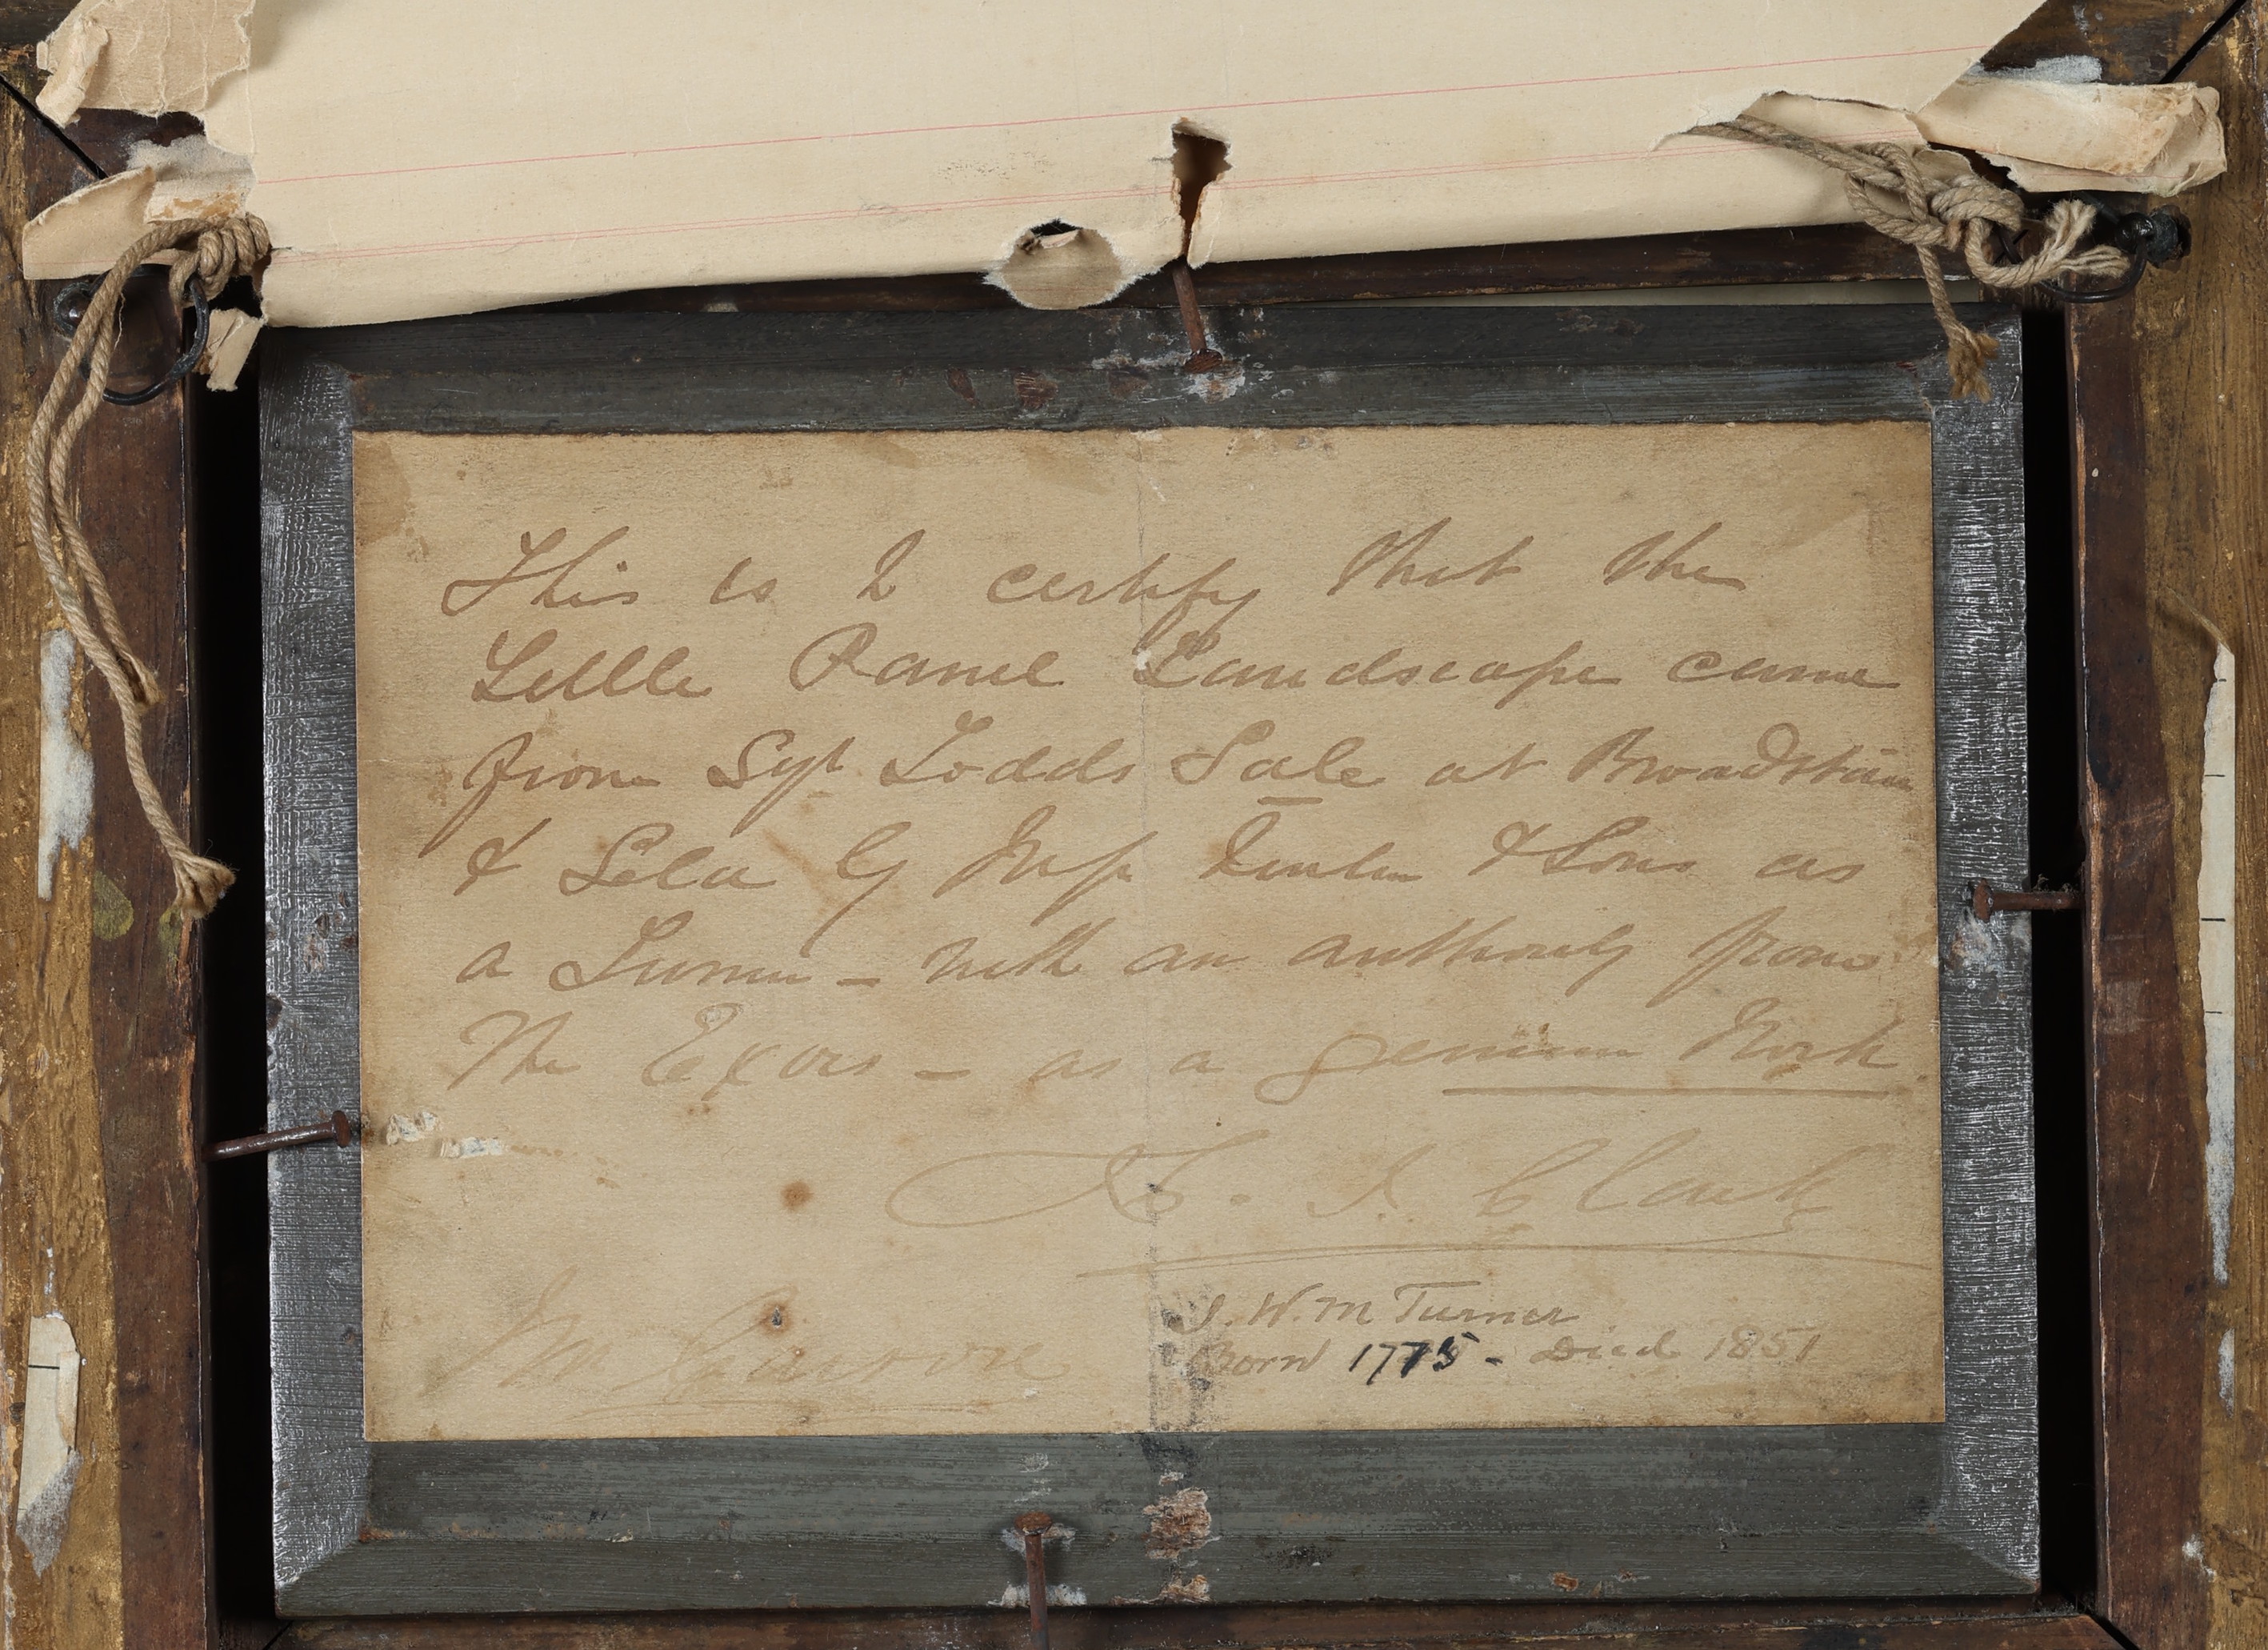 This is to certify that the
Little Panel Landscape came
from Sgt Todds Sale at Broadstairs
& Sold by & Sons as
a Turner – with an authority from
The Exors – as a genuine Work.
J. Clark
Mr
J. W. M Turner
Born 1775 - Died 1851